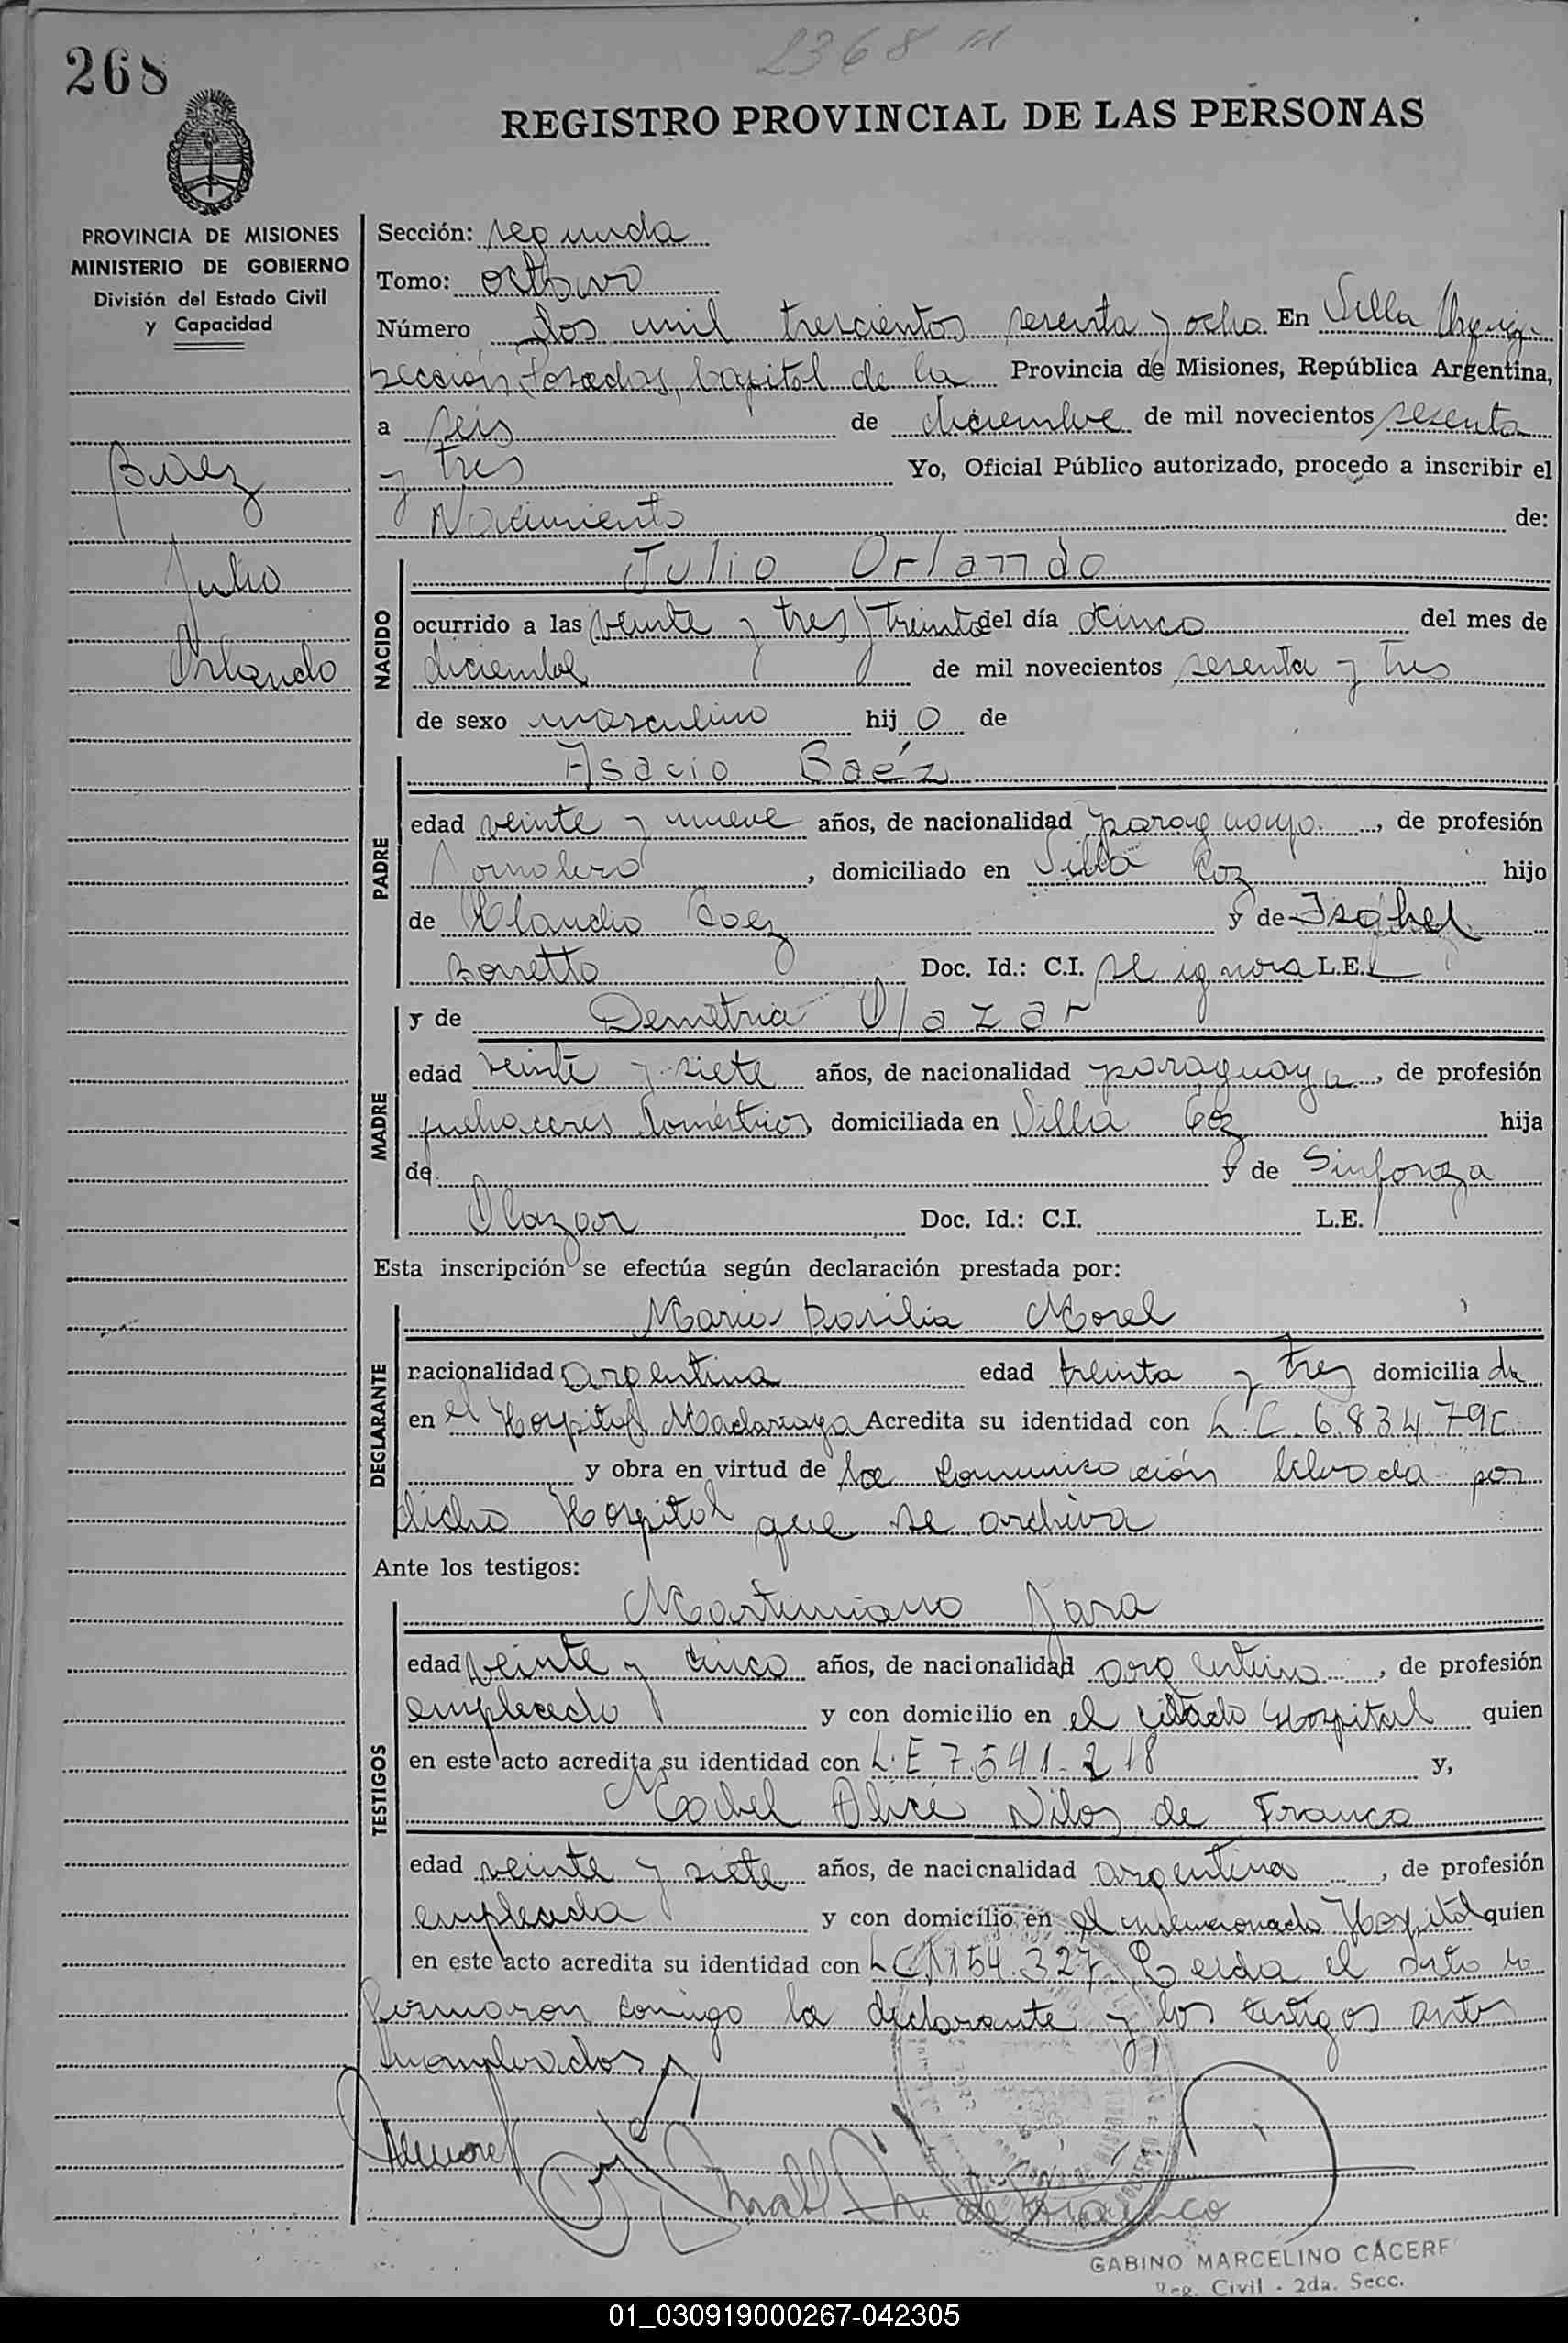 268
2368
REGISTRO PROVINCIAL DE LAS PERSONAS
PROVINCIA DE MISIONES
MINISTERIO DE GOBIERNO
División del Estado Civil
y Capacidad
Baez
Julio
Orlando
Sección: segunda
Tomo: octavo
Número dos mil trescientos sesenta y ocho En Villa
sección, Posadas, Capital de la Provincia de Misiones, República Argentina,
a seis de diciembre de mil novecientos sesenta
y tres Yo, Oficial Público autorizado, procedo a inscribir el
Nacimiento de:
NACIDO
Julio Orlando
ocurrido a las veinte y tres y treinta del día cinco del mes de
diciembre de mil novecientos sesenta y tres
de sexo masculino hij o de
PADRE
Asacio Baéz
edad veinte y nueve años, de nacionalidad paraguaya, de profesión
Jornalero, domiciliado en Villa Coz hijo
de Claudio Baez y de Isabel
Doc. Id.: C.I. se ignora L.E.
MADRE
y de Demetria Olazar
edad veinte y siete años, de nacionalidad paraguaya, de profesión
quehaceres domésticos, domiciliada en Villa Coz hija
de y de Sinforoza
Olazar Doc. Id.: C.I. L.E.
Esta inscripción se efectúa según declaración prestada por:
DECLARANTE
Maria Basilia Morel
nacionalidad argentina edad treinta y tres domicilia da
en el Hospital Madariaga Acredita su identidad con L.C. 6.834.79
y obra en virtud de la comunicación librada por
dicho Hospital que se archiva
Ante los testigos:
TESTIGOS
Martiniano Jara
edad veinte y cinco años, de nacionalidad argentina, de profesión
empleado y con domicilio en el citado Hospital quien
en este acto acredita su identidad con L.E 7.541.218 y,
Mabel Alicia de Franco
edad veinte y siete años, de nacionalidad argentina, de profesión
empleada y con domicilio en el mencionado Hospital quien
en este acto acredita su identidad con LC 1154.327 Leida el acta la
firmaron conmigo la declarante y los testigos antes
nombrados
de Franco
GABINO MARCELINO CACERE
Reg. Civil - 2da. Secc.
01_030919000267-042305